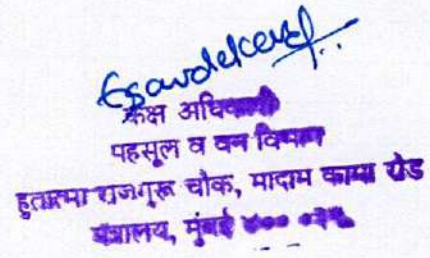 कक्ष अधिकारी
महसूल व वन विभाग
हुतात्मा राजगुरू चौक, मादाम कामा रोड
मंत्रालय, मुंबई ४०० ०३२.